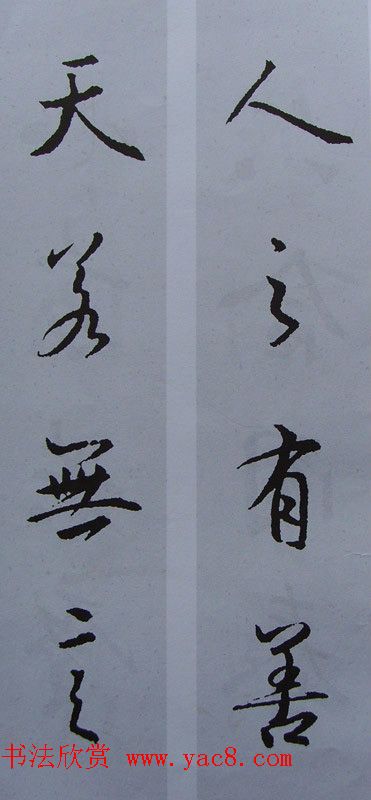 人之有善
天若無言
书法欣赏 www.yac8.com